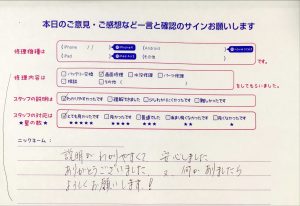 本日のご意見・ご感想など一言と確認のサインお願いします
修理機種は
iPhone / Android
iPad その他
です。
修理内容は
バッテリー交換 画面修理 水没修理 パーツ修理
相談 その他（ ）
をしてもらいました。
スタッフの説明は
わかりやすかったです 理解できました 少しわかりにくかったです 難しかったです
スタッフの対応は
★星の数★
とても良かったです 良かったです 普通でした あまり良くなかったです 良くなかったです
★★★★★ ★★★★ ★★★ ★★ ★
ニックネーム：
説明が わかりやすくて 安心しました
ありがとうございました。 又、何かありましたら
よろしくお願いします！